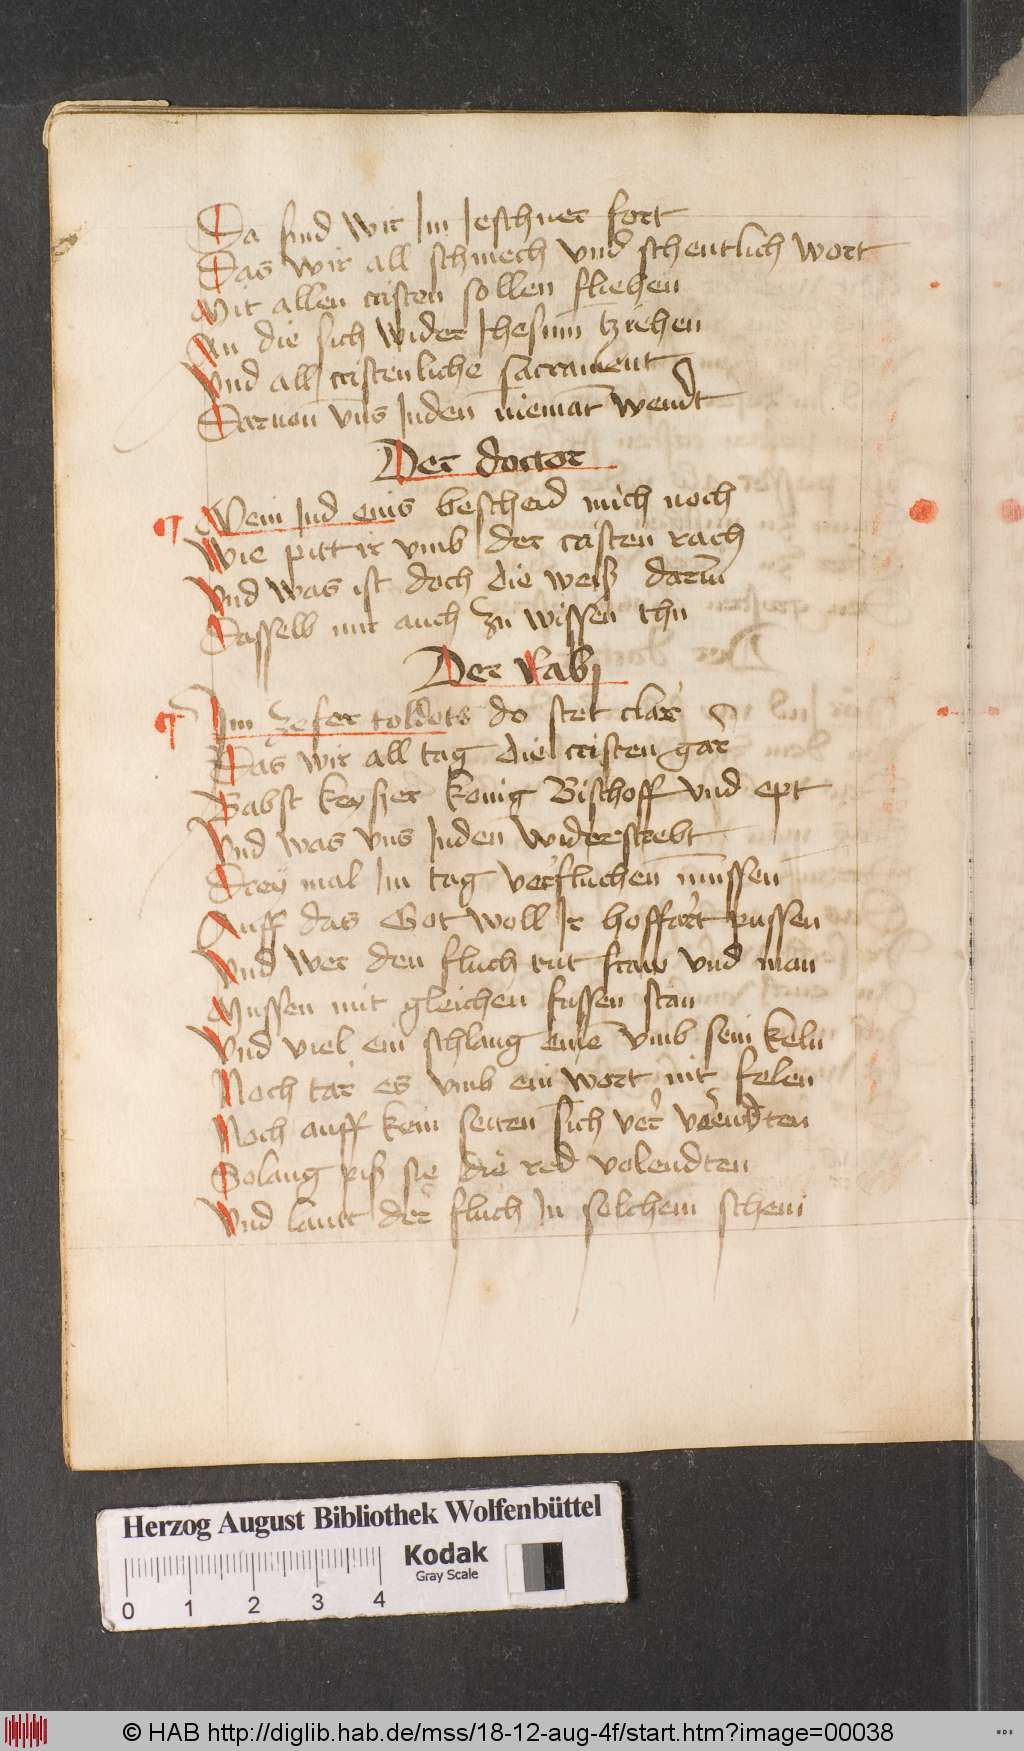 Da sind wir Im Jeschner fort
Das wir all schmech vnd schentlich wort
Mit allen cristen sollen fliehen
An die sich wider Jhesum tziehen
Vnd all cristenliche sacrament
Daruon vns Juden niemat wendt
Der doctor
Mein Jud eins bescheid mich noch
Wie pitt ir vmb der cristen rach
Vnd was ist doch die weiß darin
Dasselb mir auch zu wissen thu
Der Rabi
Im zefer toldots do stet clar
Das wir all tag die cristen gar
Babst keyser konig Bischoff vnd ept
Vnd was vns Juden widerstrebt
Drey mal Im tag verfluchen mussen
Auff das Got woll Ir hoffart pussen
Vnd wer den fluch tut fraw vnd man
Mussen mit gleichen fussen stan
Vnd viel ein schlang eine vmb sein keln
Noch tar es vmb ein wort nit felen
Noch auff kein seiten sich
Solang piß sie die red volendten
Vnd laut der fluch In solchem schein
Herzog August Bibliothek Wolfenbüttel
Kodak
Gray Scale
0 1 2 3 4
© HAB http://diglib.hab.de/mss/18-12-aug-4f/start.htm?image=00038
WDB